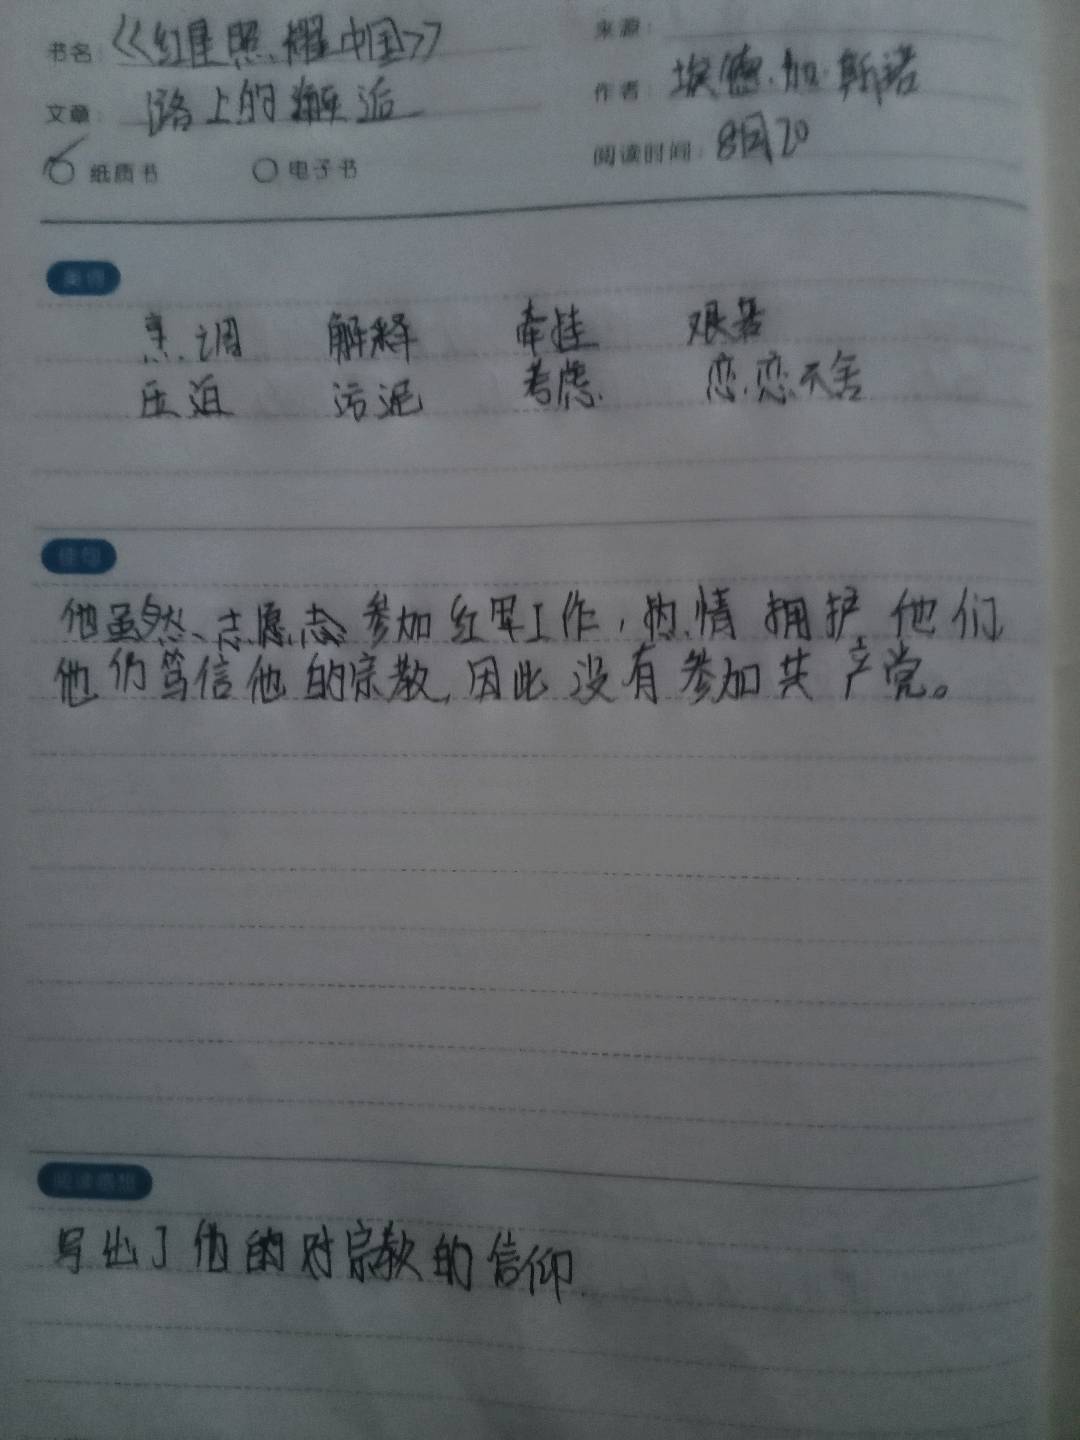 书名：《红星照耀中国》
来源：
文章：路上的邂逅
作者：埃德·加·斯诺
纸质书 电子书
阅读时间：8月20
美词
烹调 解释 牵挂 艰苦
压迫 污泥 考虑 恋恋不舍
佳句
他虽然志愿参加红军工作，热情拥护他们
他仍笃信他的宗教,因此没有参加共产党。
阅读感想
写出了他的对宗教的信仰